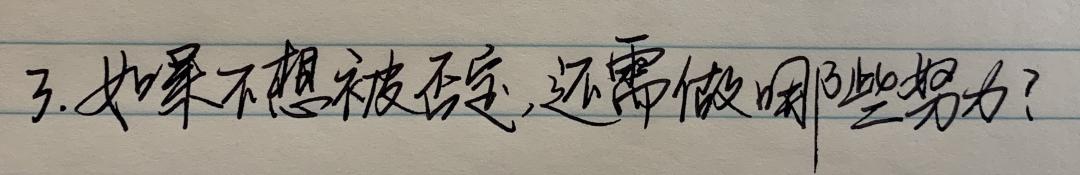 3.如果不想被否定,还需做哪些努力?